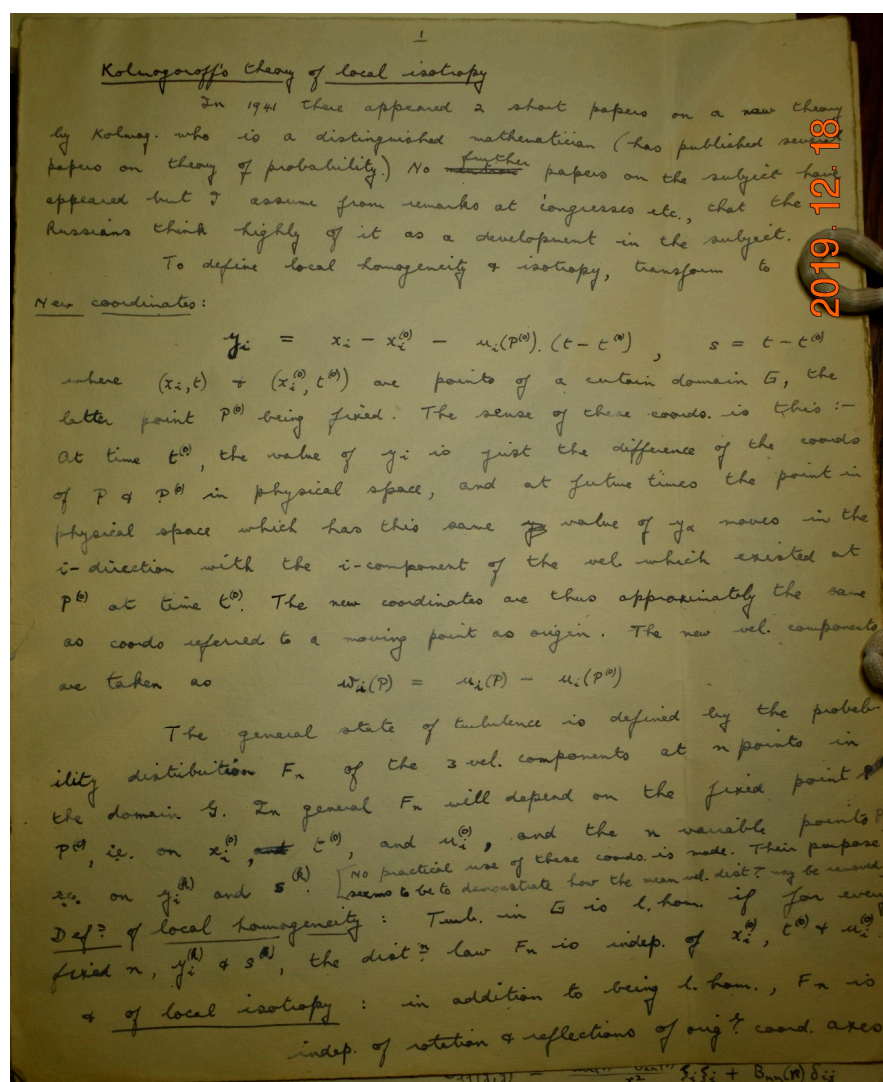 1
Kolmogoroff's theory of local isotropy
In 1941 there appeared 2 short papers on a new theory
by Kolmog. who is a distinguished mathematician (has published several
papers on theory of probability.) No further papers on the subject have
appeared but I assume from remarks at congresses etc., that the
Russians think highly of it as a development in the subject.
To define local homogeneity & isotropy, transform to
New coordinates:
y_i = x_i − x_i^(0) − u_i(P^(0)).(t − t^(0)), s = t − t^(0)
where (x_i, t) & (x_i^(0), t^(0)) are points of a certain domain G, the
latter point P^(0) being fixed. The sense of these coords. is this :-
At time t^(0), the value of y_i is just the difference of the coords
of P & P^(0) in physical space, and at future times the point in
physical space which has this same value of y_α moves in the
i-direction with the i-component of the vel. which existed at
P^(0) at time t^(0). The new coordinates are thus approximately the same
as coords referred to a moving point as origin. The new vel. components
are taken as w_i(P) = u_i(P) − u_i(P^(0))
The general state of turbulence is defined by the probab-
ility distribution F_n of the 3 vel. components at n points in
the domain G. In general F_n will depend on the fixed point
P^(0), i.e. on x_i^(0), t^(0), and u_i^(0), and the n variable points P
i.e. on y_i^(k) and s^(k). [No practical use of these coords. is made. Their purpose
seems to be to demonstrate how the mean vel. dist.n may be removed
Def.n of local homogeneity : Turb. in G is l. hom. if for every
fixed n, y_i^(k) & s^(k), the dist.n law F_n is indep. of x_i^(0), t^(0) & u_i^(0).
& of local isotropy : in addition to being l. hom., F_n is
indep. of rotation & reflections of orig.l coord. axes
ξ_i ξ_j + B_nn(r) δ_ij
2019.12.18